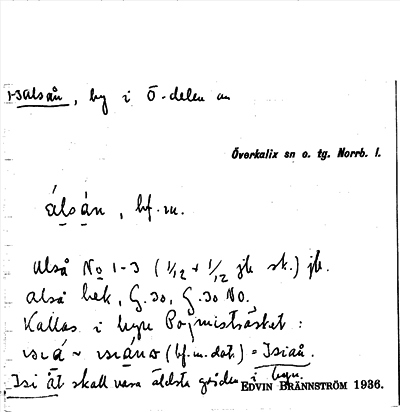 , by i Ö-delen av
Överkalix sn o. tg. Norrb. l.
álsån, bf. m.
Alså No 1-3 (1/12 + 1/12 jb sk.) jb.
Alså bek, G. 30, G. 30 NO,
Kallas i byn Pojmisträsket :
(bf. m. dat.) = Isiaå.
Isi åt skall vara äldste gården i byn.
EDVIN BRÄNNSTRÖM 1936.